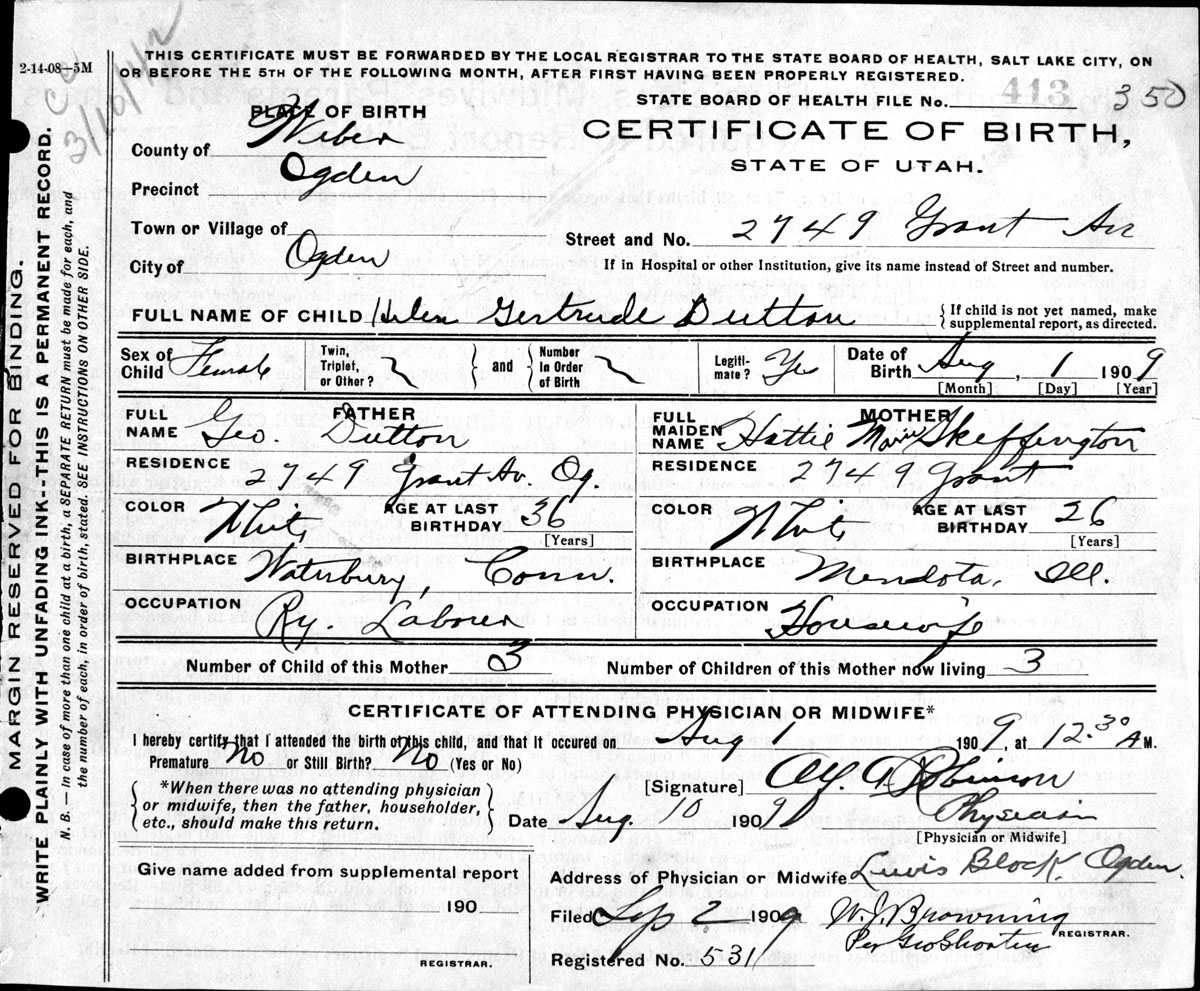 2-14-08—5M
THIS CERTIFICATE MUST BE FORWARDED BY THE LOCAL REGISTRAR TO THE STATE BOARD OF HEALTH, SALT LAKE CITY, ON
OR BEFORE THE 5TH OF THE FOLLOWING MONTH, AFTER FIRST HAVING BEEN PROPERLY REGISTERED.
STATE BOARD OF HEALTH FILE No. 413 350
PLACE OF BIRTH
CERTIFICATE OF BIRTH,
STATE OF UTAH.
County of Weber
Precinct Ogden
Town or Village of
Street and No. 2749 Grant Av
City of Ogden
If in Hospital or other Institution, give its name instead of Street and number.
FULL NAME OF CHILD Helen Gertrude Dutton { If child is not yet named, make supplemental report, as directed.
Sex of Child Female Twin, Triplet, or Other? } and { Number In Order of Birth Legiti-mate? Yes Date of Birth Aug, 1 1909
[Month] [Day] [Year]
FATHER
FULL NAME Geo. Dutton
RESIDENCE 2749 Grant Av. Og.
COLOR White AGE AT LAST BIRTHDAY 36
[Years]
BIRTHPLACE Waterbury, Conn.
OCCUPATION Ry. Laborer
MOTHER
FULL MAIDEN NAME Hattie Marie Skeffington
RESIDENCE 2749 Grant
COLOR White AGE AT LAST BIRTHDAY 26
[Years]
BIRTHPLACE Mendota, Ill.
OCCUPATION Housewife
Number of Child of this Mother 3 Number of Children of this Mother now living 3
CERTIFICATE OF ATTENDING PHYSICIAN OR MIDWIFE*
I hereby certify that I attended the birth of this child, and that it occured on Aug 1 1909, at 12.30 A M.
Premature No or Still Birth? No (Yes or No)
[Signature] Robinson
*When there was no attending physician
or midwife, then the father, householder,
etc., should make this return.
Date Aug. 10 1909
Physician
[Physician or Midwife]
Give name added from supplemental report
190
REGISTRAR.
Address of Physician or Midwife Lewis Block, Ogden.
Filed Sep 2 1909 W. J. Browning
Per Geo Shorten REGISTRAR.
Registered No. 531
MARGIN RESERVED FOR BINDING.
WRITE PLAINLY WITH UNFADING INK--THIS IS A PERMANENT RECORD.
N. B.—In case of more than one child at a birth, a SEPARATE RETURN must be made for each, and
the number of each, in order of birth, stated. SEE INSTRUCTIONS ON OTHER SIDE.